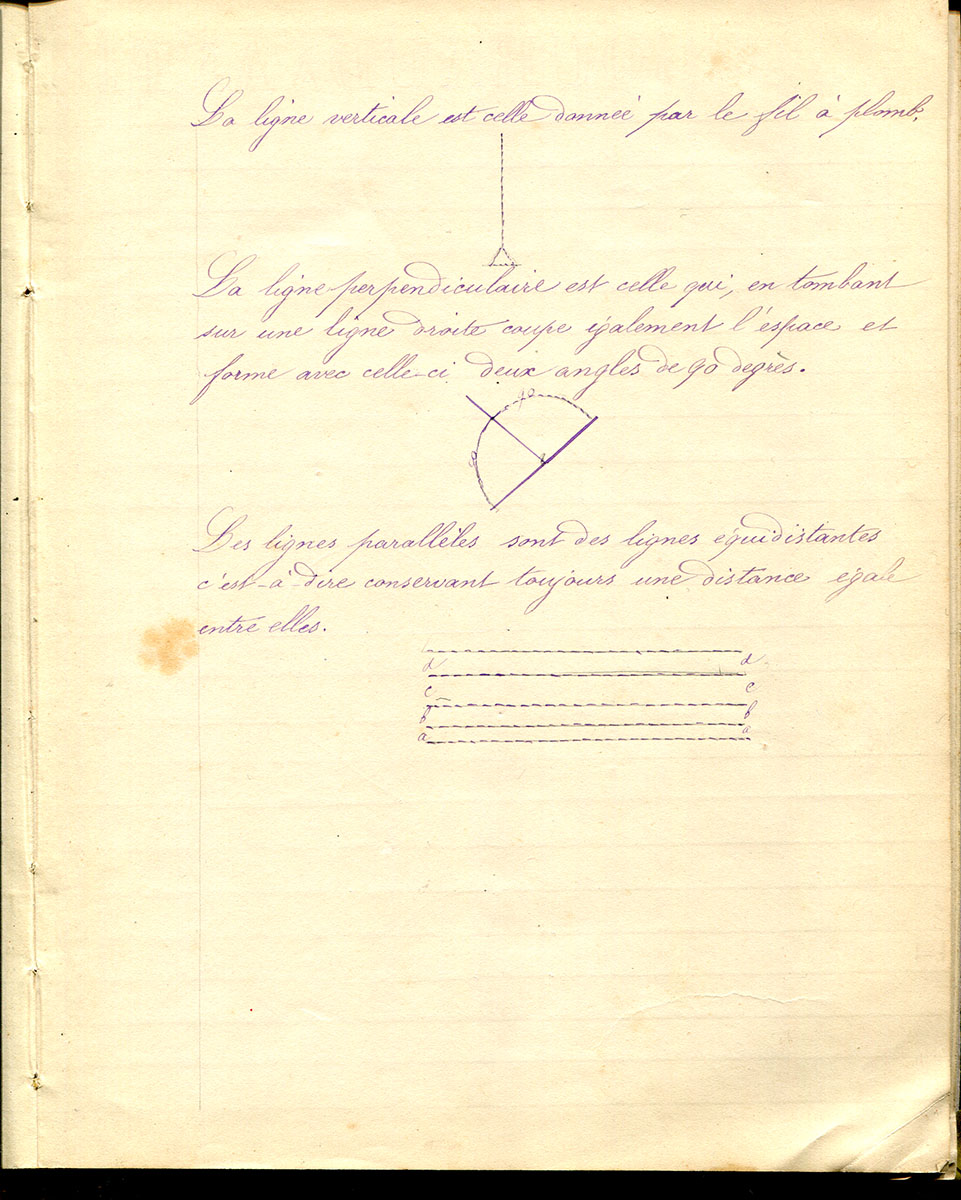 La ligne verticale est celle donnée par le fil à plomb.
La ligne perpendiculaire est celle qui, en tombant
sur une ligne droite coupe également l'éspace et
forme avec celle-ci deux angles de 90 degrès.
90
90
Les lignes parallèles sont des lignes équidistantes
c'est-à-dire conservant toujours une distance égale
entre elles.
d d
c c
b b
a a